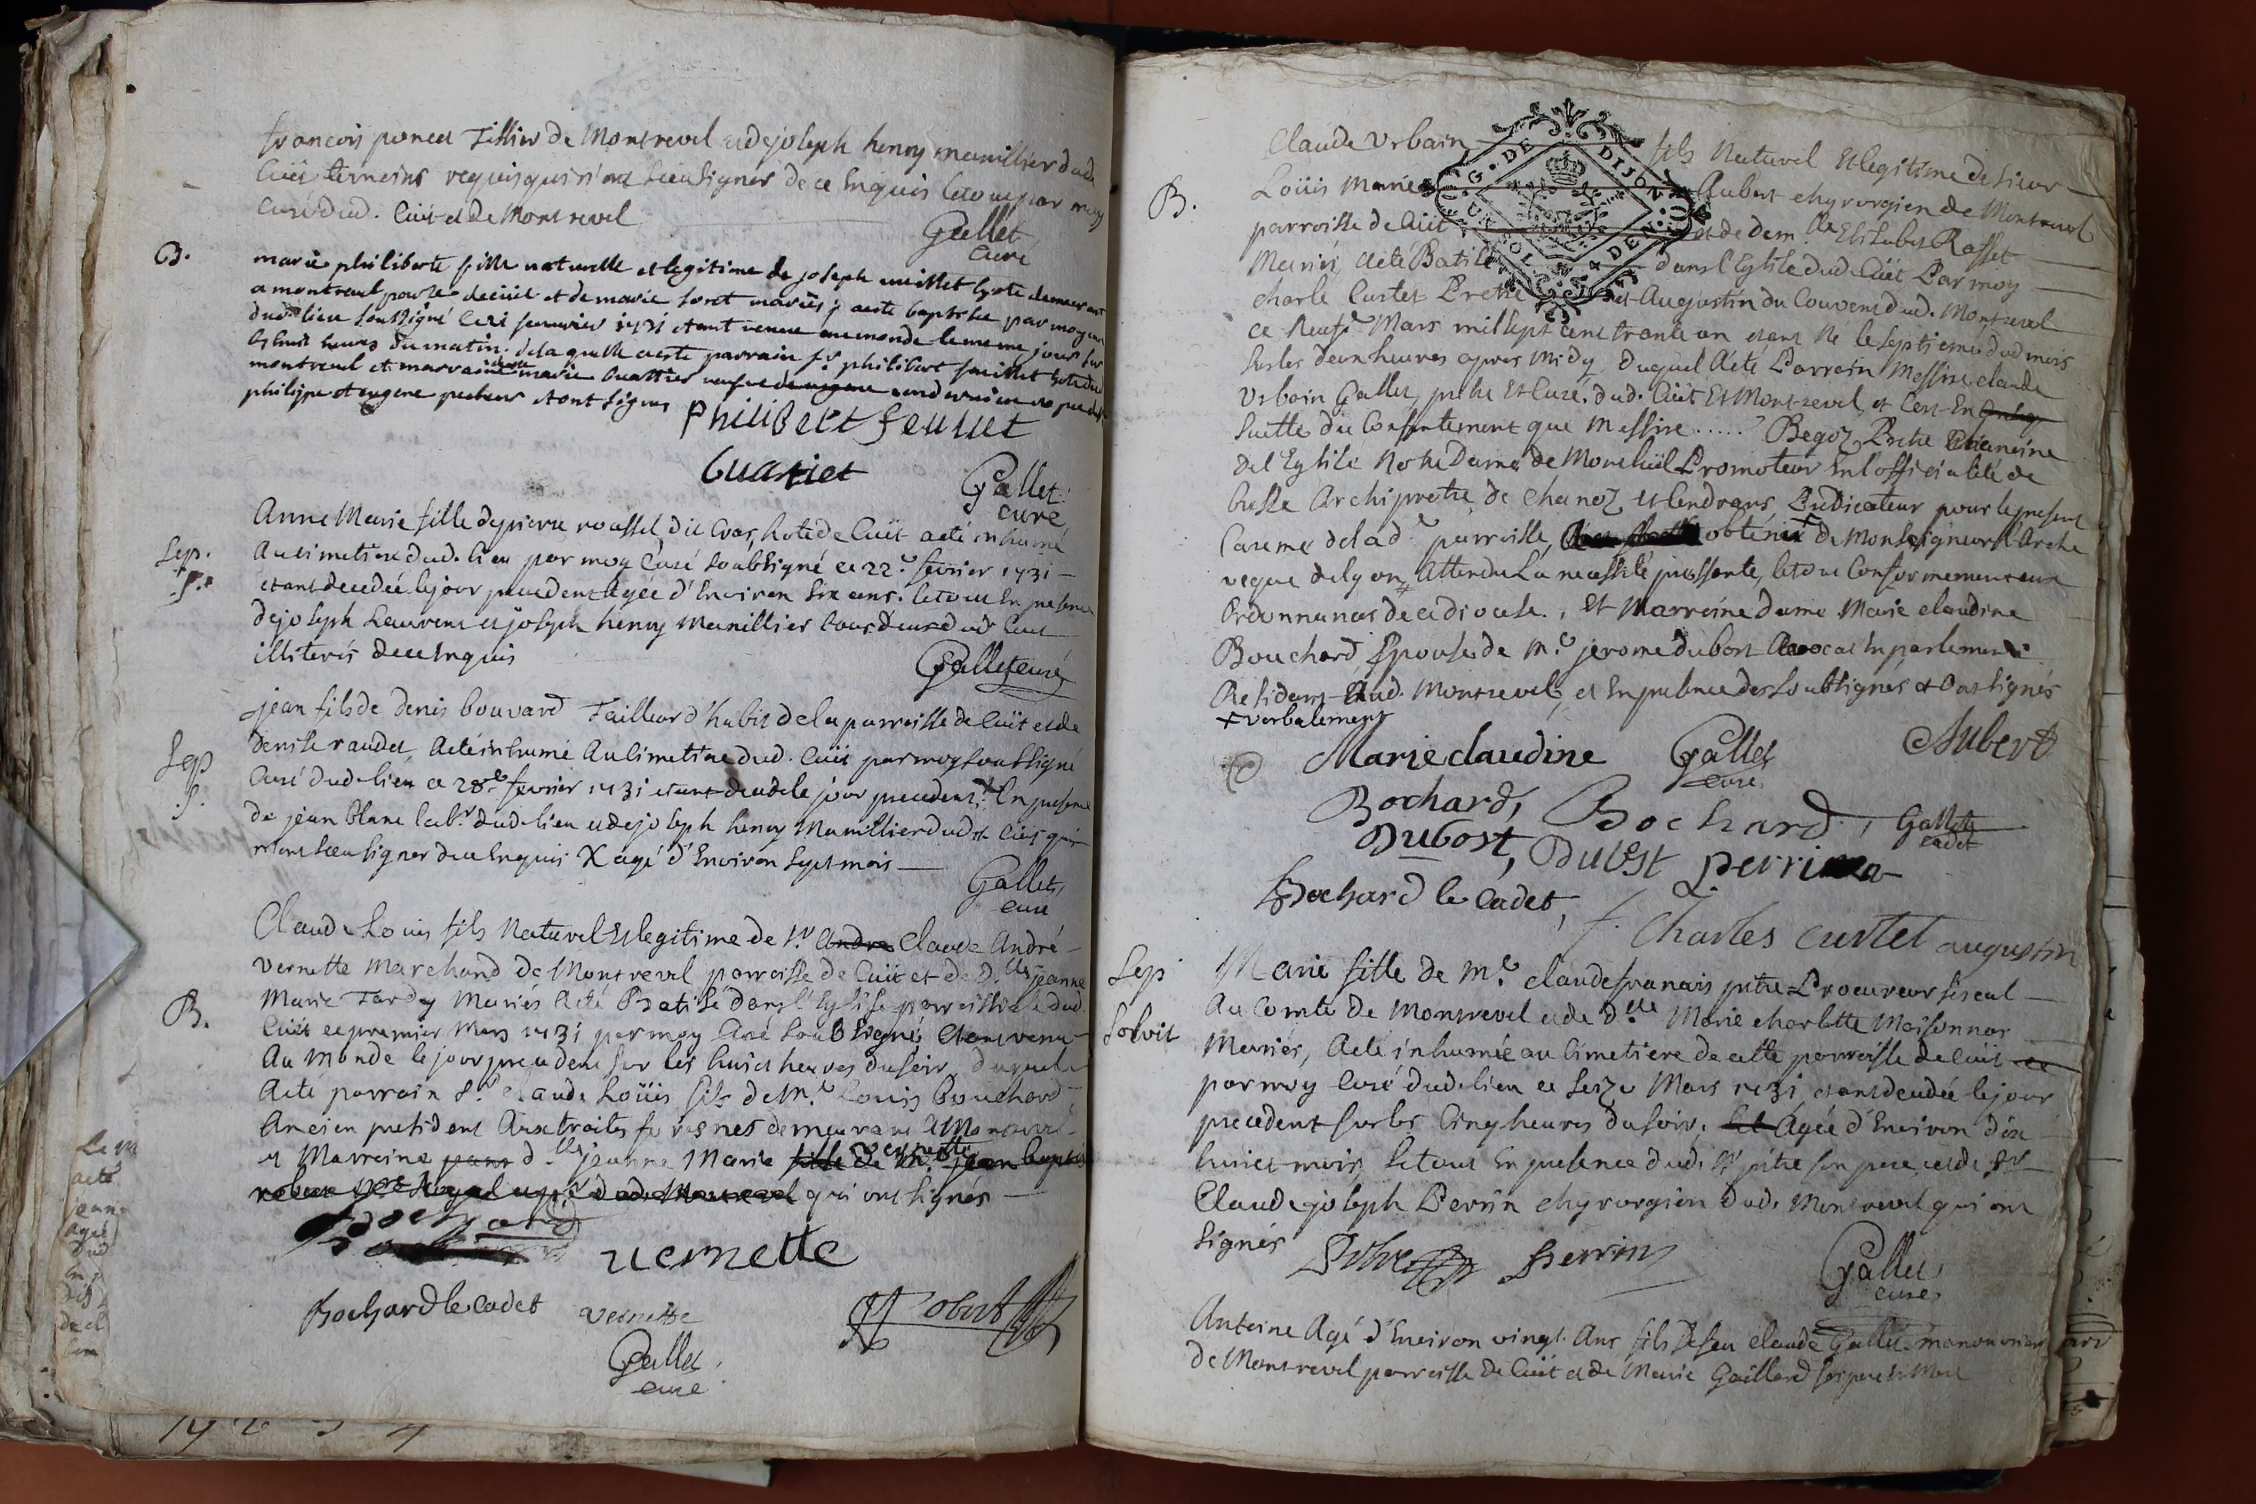 françois poncet Tissier de Montrevel et de joseph henry manillier dud
Cuët temoins requis qui n'ont sceu signer de ce Enquis le tout par moy
Curé dud. Cuët et de Montrevel
Gallet
curé
B.
marie philiberte fille naturelle et legitime de joseph meillet hote demeurant
a montrevel par[sse] de cüet et de marie soret mariés a esté baptisée par moy curé
dud lieu soussigné ce 21 fevrier 1731 etant venue au monde le meme jour sur
les huit heures du matin. de laquelle a esté parrain s.r philibert feuillet hote dud
montrevel et marraine marie Cuartier
philippe et eugene pecheur et ont signés
philibert feuillet
Cuartiet
Gallet
curé
Sep.
f.
Anne Marie fille de pierre roussel dit Cras, hote de Cüet a eté inhumé
Au cimetiere dud. lieu par moy Curé soubsigné ce 22.e fevrier 1731
etant decedée le jour precedent agée d'Environ six ans. le tout En presence
de joseph Laurent et joseph henry Manillier tous deux dud Cuet
illiterés de ce Enquis
Gallet curé
Sep
f.
jean fils de denis bouvard Tailleur d'habit de la parroisse de Cüet et de
denise raudet, a eté inhumé Au Cimetiere dud. Cüet par moy soubsigné
Curé dud. lieu ce 28.e fevrier 1731 etant decedé le jour precedent, X En presence
de jean blanc lab.r dud. lieu et de joseph henry Manillier dud. Cüet qui
n'ont sceu signer de ce Enquis X agé d'Environ sept mois
Gallet
curé
B.
Claude Louis fils Naturel et legitime de s.r Andre Claude André
vernette Marchand de Montrevel parroisse de Cüet et de d.lle jeanne
Marie Tardy Mariés a eté Batisé dans l'Eglise parroissiale dud.
Cüet ce premier Mars 1731 par moy Curé soubsigné, etant venu
Au Monde le jour precedent sur les huict heures du soir, duquel
a eté parrain s.r claude Loüis fils de M.e Louis Bouchard
Ancien president Aux traites foraines demeurant a Montrevel
et Marreine d.lle jeanne Marie vernette fille de M.e jean baptiste
qui ont signés
Bochard
vernette
Bochard le Cadet
vernette
Robert
Gallet
curé
B.
Claude Urbain fils Naturel et legitime de sieur
Loüis Marie Aubert chyrorgien de Montrevel
parroisse de Cüet et de dem.lle Elisabet Rosset
Mariés, a eté Batisé dans l'Eglise dud. Cüet Par moy
charle Curtet Pretre Augustin du Couvent dud. Montrevel
ce Neuf.e Mars mil sept cent trante un etant Né le septieme dud mois
sur les deux heures apres Midy, duquel a eté Parrein Messire claude
Urbain Gallet, pretre et Curé dud. Cüet et Montrevel, et C'est En
suitte du Consentement que Messire ..... Begoz Pretre Chanoine
de l'Eglise Notre Dame de Monluël Promoteur En l'officialité de
bresse Archipretre de chanoz et Sendrans, Predicateur pour le present
Careme de lad.e parroisse, obtenu + de Monseigneur l'Arche
veque de lyon, Attendu La necessité pressente, le tout Conformement aux
Ordonnances de ce diocese. Et Marreine dame Marie claudine
Bouchard Epouse de M.e jerome dubost Avocat En parlement
Residant Aud. Montrevel, et En presence des soubsignés et ont signés
+ verbalement
Marie claudine
Bochard,
Gallet
curé
Aubert
Bochard,
Gallet
cadet
Dubost, Dubost perrin
Bochard le cadet,
f. Charles curtet augustin
Sep
Solvit
Marie fille de M.e claude françois pitre Procureur fiscal
Au Comté de Montrevel et de d.lle Marie charlotte Maisonnas
Mariés, a eté inhumée au Cimetiere de cette parroisse de Cüet ce
par moy Curé dud. lieu ce seize Mars 1731 etant decedée le jour
precedent sur les Cinq heures du soir, Agée d'Environ dix
huict mois, le tout En presence dud. s.r pitre son pere, et de s.r
Claude joseph Perrin chyrorgien dud. Montrevel qui ont
signés
Pitre
Perrin
Gallet
curé
Antoine Agé d'Environ vingt Ans fils de feu claude Gallet manouvrier
de Montrevel parroisse de Cüet et de Marie Gaillard
G. DE DIJON